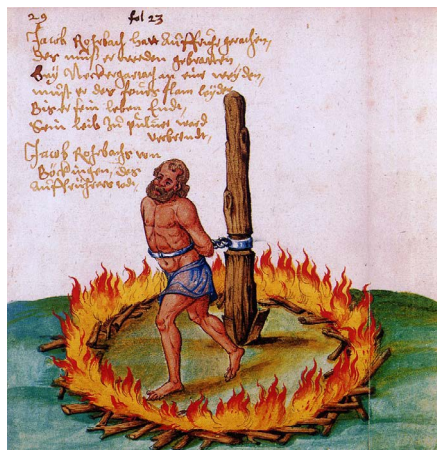 29 fol 23
Jacob Rohrbach hatt Auffruhr gemachtt,
der must er werden gebraten
Bey Neckergartach an ein weyden,
must er des feurs flam leyden
Bis er sein leben Endt,
Sein leib Zu puluer ward
verbrendt.
Jacob Rohrbachs von
Böckingen, des
Auffrührers todt.